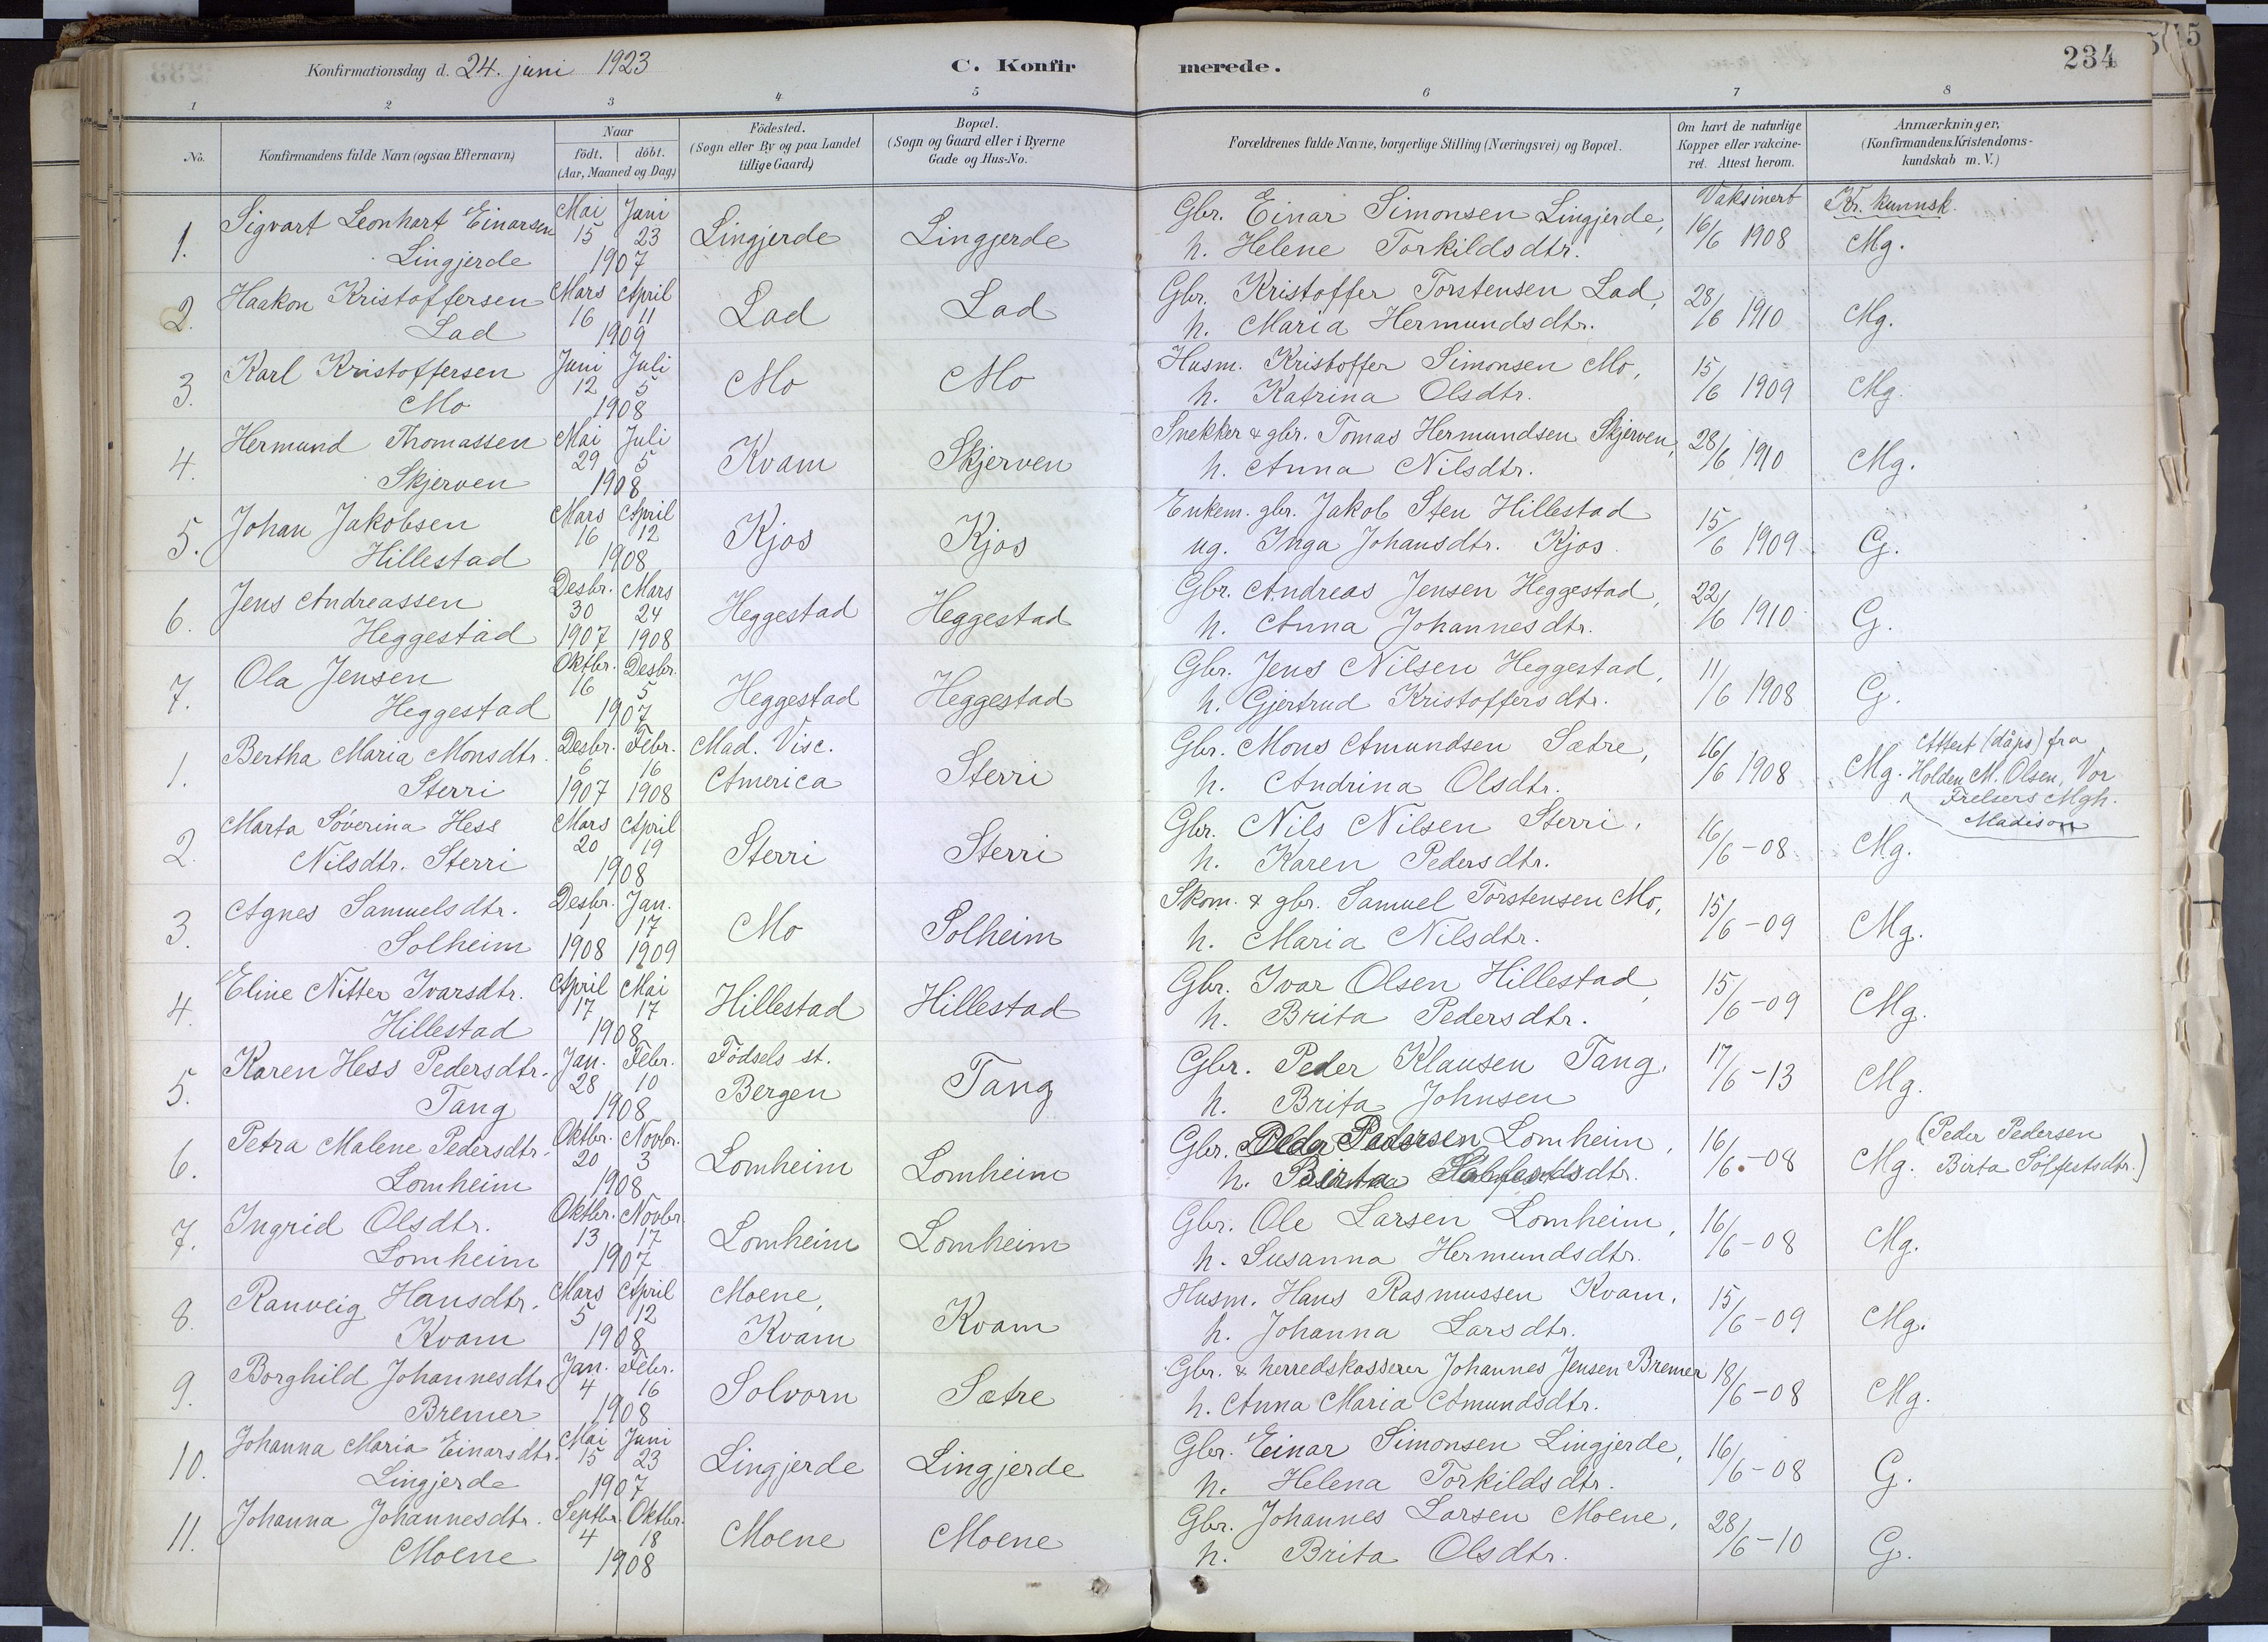 Konfirmationsdag d. 24. juni 1923
C. Konfir merede.
234
1 2 3 4 5 6 7 8
No.
Konfirmandens fulde Navn (ogsaa Efternavn)
Naar
födt. döbt.
(Aar, Maaned og Dag)
Födested.
(Sogn eller By og paa Landet
tillige Gaard)
Bopæl.
(Sogn og Gaard eller i Byerne
Gade og Hus-No.
Forældrenes fulde Navne, borgerlige Stilling (Næringsvei) og Bopæl.
Om havt de naturlige
Kopper eller vakcine-
ret. Attest herom.
Anmærkninger,
(Konfirmandens Kristendoms-
kundskab m. V.)
Vaksinert Kr. kunnsk.
1. Sigvart Leonhart Einarsen Mai Juni Lingjerde Lingjerde Gbr. Einar Simonsen Lingjerde, 16/6 1908 Mg.
Lingjerde 15 23 1907 h. Helene Torkildsdtr.
2. Haakon Kristoffersen Mars April Lad Lad Gbr. Kristoffer Torstensen Lad, 28/6 1910 Mg.
Lad 16 11 1909 h. Maria Hermundsdtr.
3. Karl Kristoffersen Juni Juli Mo Mo Husm. Kristoffer Simonsen Mo, 15/6 1909 Mg.
Mo 12 5 1908 h. Katrina Olsdtr.
4. Hermund Thomassen Mai Juli Kvam Skjerven Snekker & gbr. Tomas Hermundsen Skjerven, 28/6 1910 Mg.
Skjerven 29 5 1908 h. Anna Nilsdtr.
5. Johan Jakobsen Mars April Kjos Kjos Enkem. gbr. Jakob Sten Hillestad 15/6 1909 G.
Hillestad 16 12 1908 ug. Inga Johansdtr. Kjos
6. Jens Andreassen Desbr. Mars Heggestad Heggestad Gbr. Andreas Jensen Heggestad, 22/6 1910 G.
Heggestad 30 24 1907 1908 h. Anna Johannesdtr.
7. Ola Jensen Oktbr. Desbr. Heggestad Heggestad Gbr. Jens Nilsen Heggestad, 11/6 1908 G.
Heggestad 16 5 1907 h. Gjertrud Kristoffersdtr.
1. Bertha Maria Monsdtr. Desbr. Febr. Mad. Visc. America Sterri Gbr. Mons Amundsen Sætre, 16/6 1908 Mg. Attest (dåps) fra
Sterri 6 16 1907 1908 h. Andrina Olsdtr. Holden M. Olsen, Vor
Frelsers Mgh.
Madison
2. Marta Söverina Hess Mars April Sterri Sterri Gbr. Nils Nilsen Sterri, 16/6-08 Mg.
Nilsdtr. Sterri 20 19 1908 h. Karen Pedersdtr.
3. Agnes Samuelsdtr. Desbr. Jan. Mo Solheim Skom. & gbr. Samuel Torstensen Mo, 15/6-09 Mg.
Solheim 1 17 1908 1909 h. Maria Nilsdtr.
4. Eline Nitter Ivarsdtr. April Mai Hillestad Hillestad Gbr. Ivar Olsen Hillestad, 15/6-09 Mg.
Hillestad 17 17 1908 h. Brita Pedersdtr.
5. Karen Hess Pedersdtr. Jan. Febr. Födsels st. Bergen Tang Gbr. Peder Klausen Tang, 17/6-13 Mg.
Tang 28 10 1908 h. Brita Johnsen
6. Petra Malene Pedersdtr. Oktbr. Novbr. Lomheim Lomheim Gbr. Peder Pedersen Lomheim, 16/6-08 Mg. (Peder Pedersen
Lomheim 20 3 1908 h. Birta Sölfestsdtr. Birta Sölfestsdtr.)
7. Ingrid Olsdtr. Oktbr. Novbr. Lomheim Lomheim Gbr. Ole Larsen Lomheim, 16/6-08 Mg.
Lomheim 13 17 1907 h. Susanna Hermundsdtr.
8. Ranveig Hansdtr. Mars April Moene, Kvam Kvam Husm. Hans Rasmussen Kvam, 15/6-09 Mg.
Kvam 5 12 1908 h. Johanna Larsdtr.
9. Borghild Johannesdtr. Jan. Febr. Solvorn Sætre Gbr. & herredskasserer Johannes Jensen Bremer 18/6-08 Mg.
Bremer 4 16 1908 h. Anna Maria Amundsdtr.
10. Johanna Maria Einarsdtr. Mai Juni Lingjerde Lingjerde Gbr. Einar Simonsen Lingjerde, 16/6-08 G.
Lingjerde 15 23 1907 h. Helena Torkildsdtr.
11. Johanna Johannesdtr. Septbr. Oktbr. Moene Moene Gbr. Johannes Larsen Moene, 28/6-10 G.
Moene 4 18 1908 h. Brita Olsdtr.